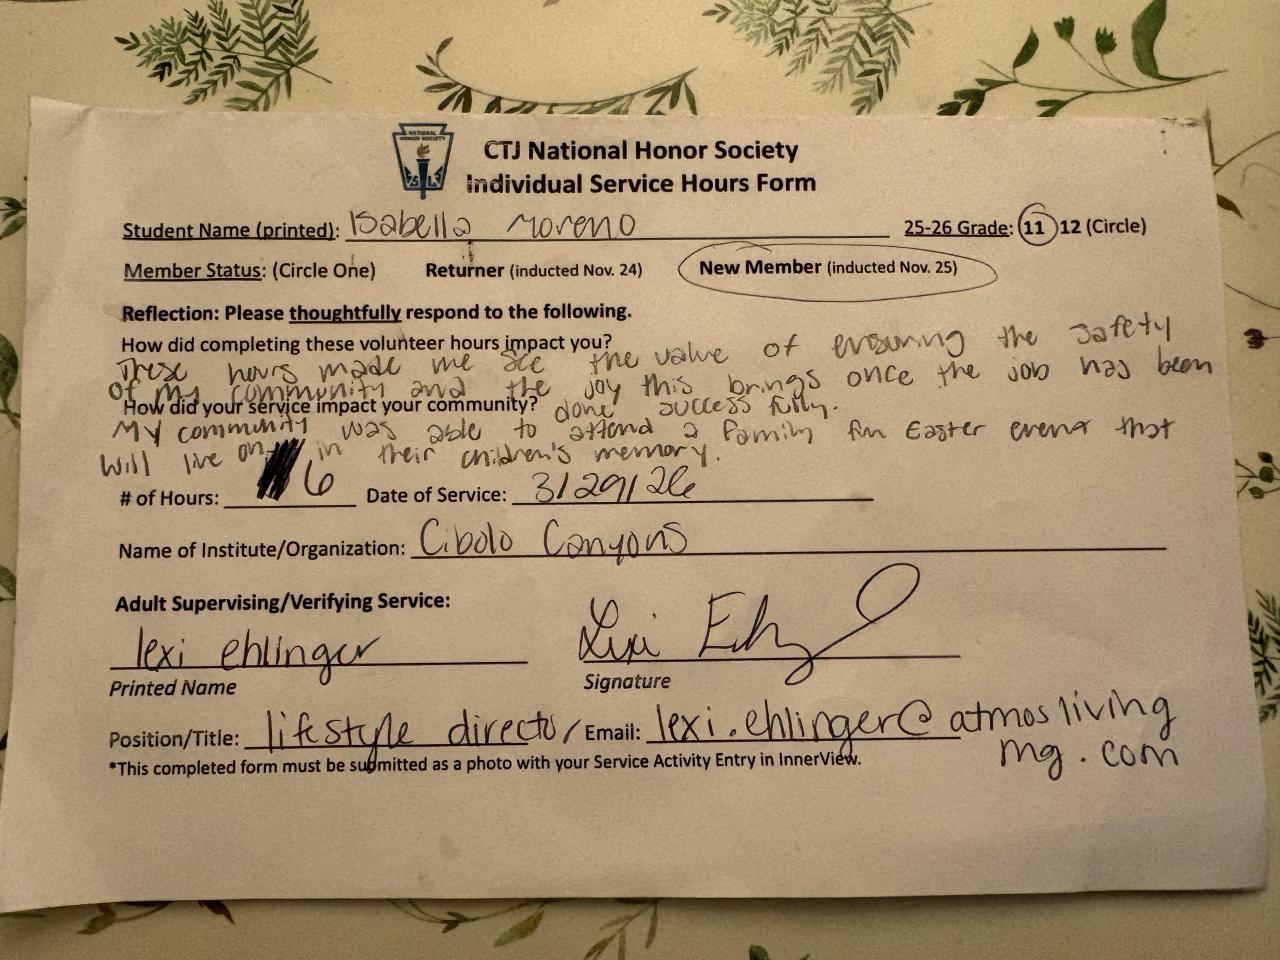 NATIONAL
HONOR SOCIETY
CTJ National Honor Society
Individual Service Hours Form
Student Name (printed): Isabella Moreno 25-26 Grade: 11 12 (Circle)
Member Status: (Circle One) Returner (inducted Nov. 24) New Member (inducted Nov. 25)
Reflection: Please thoughtfully respond to the following.
How did completing these volunteer hours impact you?
These hours made me see the value of ensuring the safety
of my community and the joy this brings once the job has been
done successfully.
How did your service impact your community?
My community was able to attend a family fun Easter event that
will live on in their children's memory.
# of Hours: 6 Date of Service: 3/29/26
Name of Institute/Organization: Cibolo Canyons
Adult Supervising/Verifying Service:
lexi ehlinger Lexi
Printed Name Signature
Position/Title: lifestyle director Email: lexi.ehlinger@atmosliving
mg.com
*This completed form must be submitted as a photo with your Service Activity Entry in InnerView.